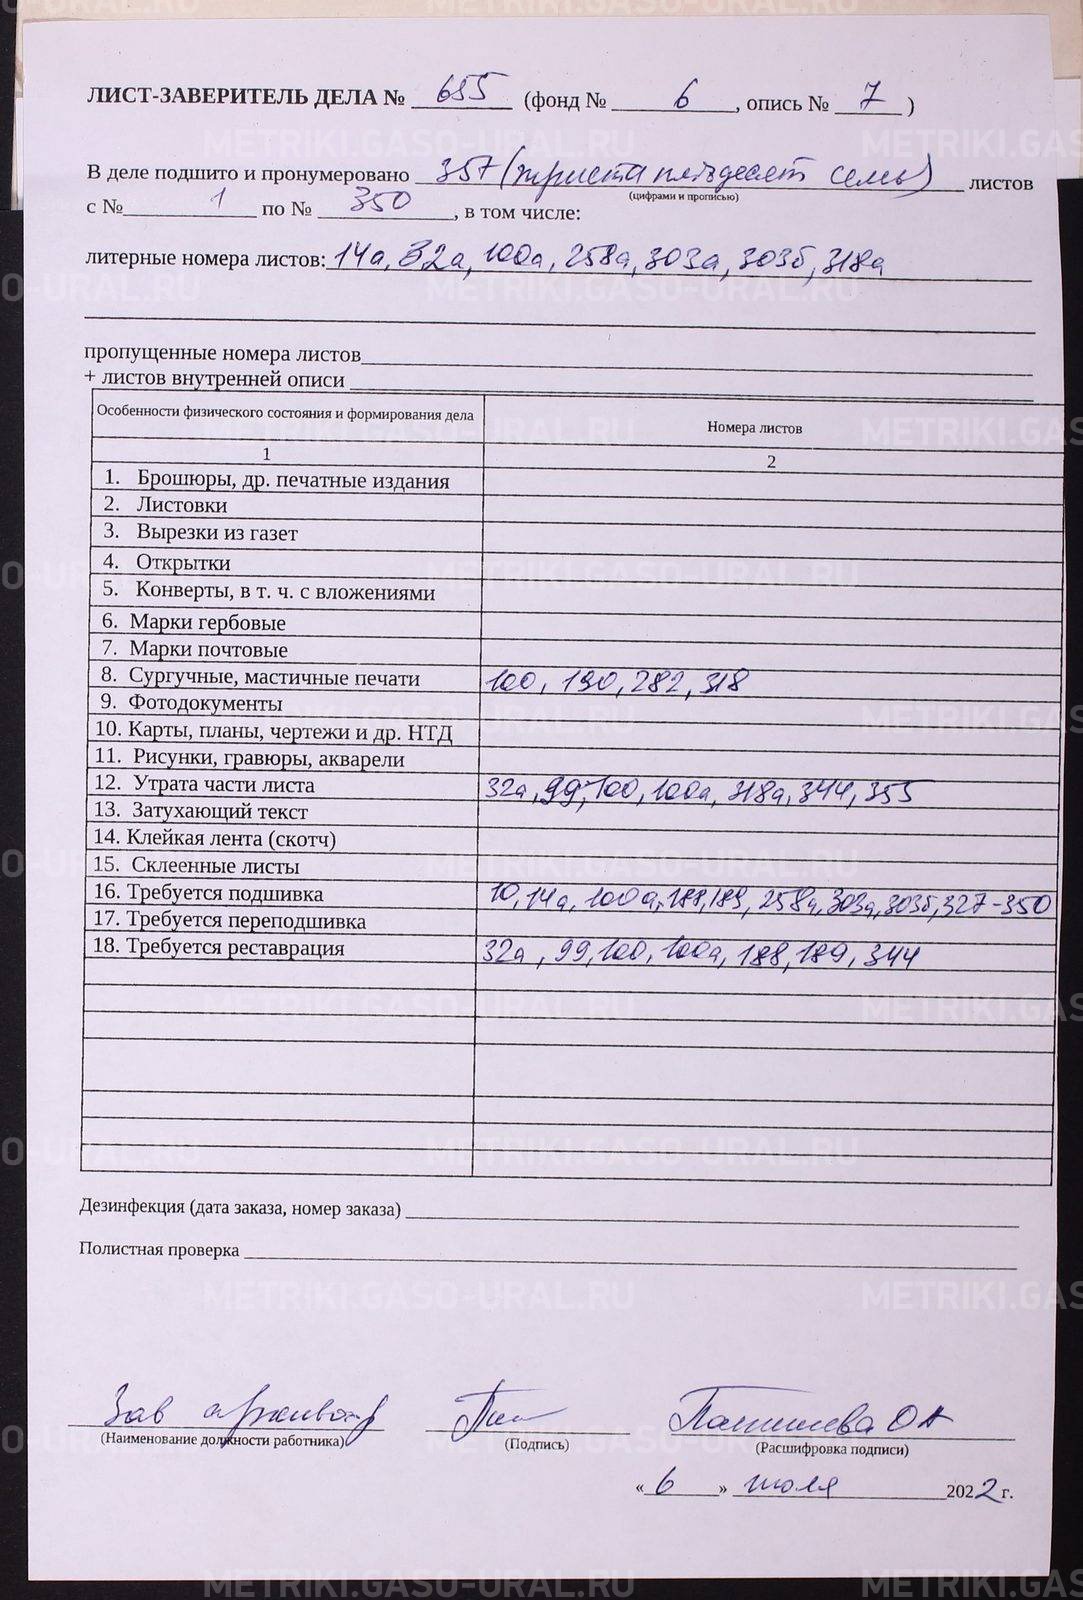 ЛИСТ-ЗАВЕРИТЕЛЬ ДЕЛА № 655 (фонд № 6, опись № 7)
В деле подшито и пронумеровано 357 (триста пятьдесят семь) листов
(цифрами и прописью)
с № 1 по № 350, в том числе:
литерные номера листов: 14а, 32а, 100а, 258а, 303а, 303б, 318а
пропущенные номера листов
+ листов внутренней описи
Особенности физического состояния и формирования дела Номера листов
1 2
1. Брошюры, др. печатные издания
2. Листовки
3. Вырезки из газет
4. Открытки
5. Конверты, в т. ч. с вложениями
6. Марки гербовые
7. Марки почтовые
8. Сургучные, мастичные печати 100, 190, 282, 318
9. Фотодокументы
10. Карты, планы, чертежи и др. НТД
11. Рисунки, гравюры, акварели
12. Утрата части листа 32а, 99, 100, 100а, 318а, 344, 355
13. Затухающий текст
14. Клейкая лента (скотч)
15. Склеенные листы
16. Требуется подшивка 10, 14а, 100а, 188, 189, 258а, 303а, 303б, 327-350
17. Требуется переподшивка
18. Требуется реставрация 32а, 99, 100, 100а, 188, 189, 344
Дезинфекция (дата заказа, номер заказа)
Полистная проверка
Зав архивохр ОА
(Наименование должности работника) (Подпись) (Расшифровка подписи)
« 6 » июля 2022 г.
METRIKI.GASO-URAL.RU